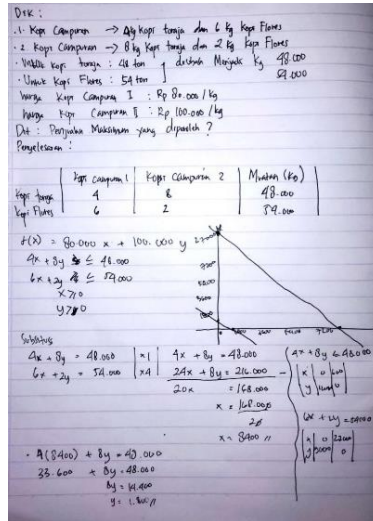 DIK :
.1. Kopi Campuran → 4 kg kopi toraja dan 6 kg Kopi Flores
.2 Kopi Campuran → 8 kg Kopi toraja dan 2 kg Kopi Flores
Untuk kopi toraja : 48 ton } dirubah Menjadi kg 48.000
. Untuk Kopi Flores : 54 ton 54.000
harga Kopi Campuran I : Rp 80.000 / kg
harga Kopi Campuran II : Rp 100.000 / kg
Dit : Penjualan Maksimum yang diperoleh ?
Penyelesaian :
Kopi campuran 1 Kopi Campuran 2 Muatan (KG)
Kopi toraja 4 8 48.000
Kopi Flores 6 2 54.000
f(x) = 80.000 x + 100.000 y
4x + 8y ≤ 48.000
6x + 2y ≤ 54.000
x ≥ 0
y ≥ 0
Substitusi
4x + 8y = 48.000 | x1 | 4x + 8y = 48.000
6x + 2y = 54.000 | x4 | 24x + 8y = 216.000
20x = 168.000
x = 168.000
20
x = 8400 //
4x + 8y ≤ 48.000
x 0
y 0
6x + 2y = 54000
x 0
y 0
- 4(8400) + 8y = 48.000
33.600 + 8y = 48.000
8y = 14.400
y = 1.800 //